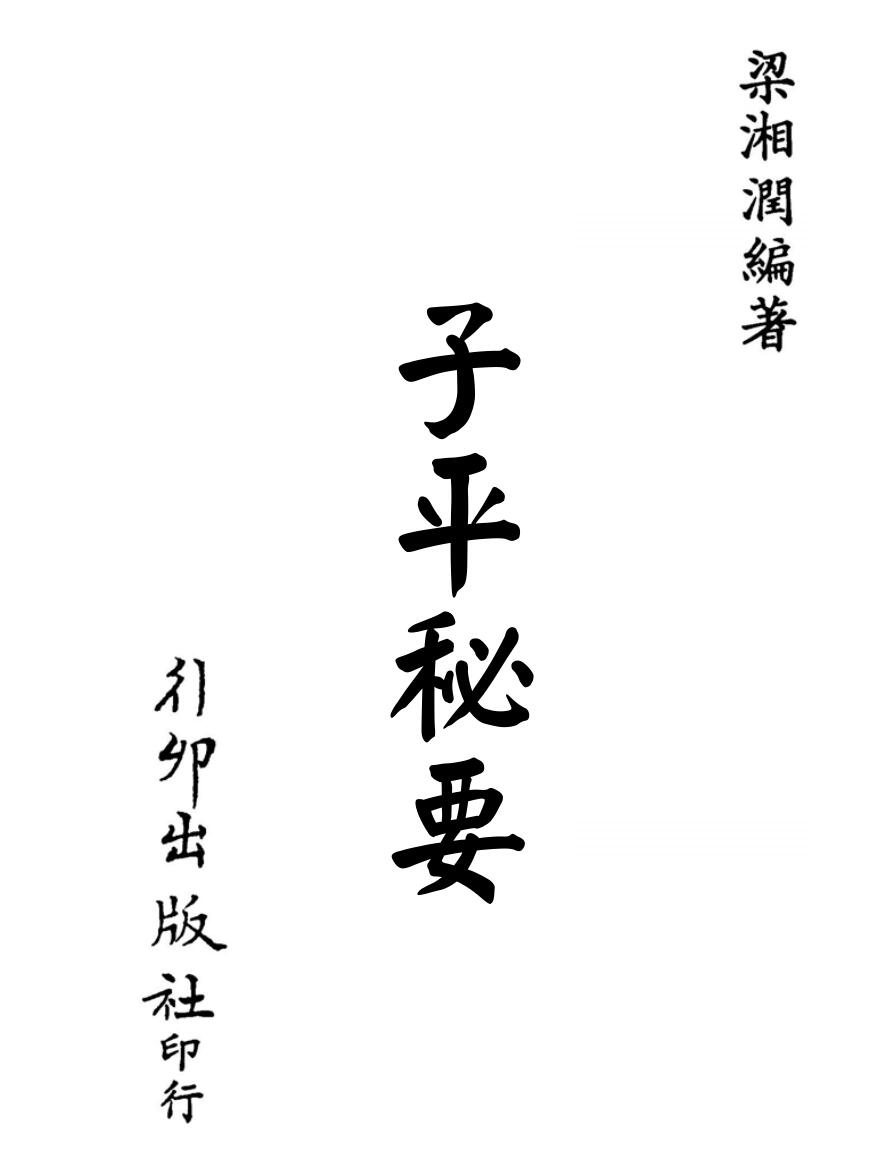 梁湘潤編著
子平秘要
行卯出版社印行